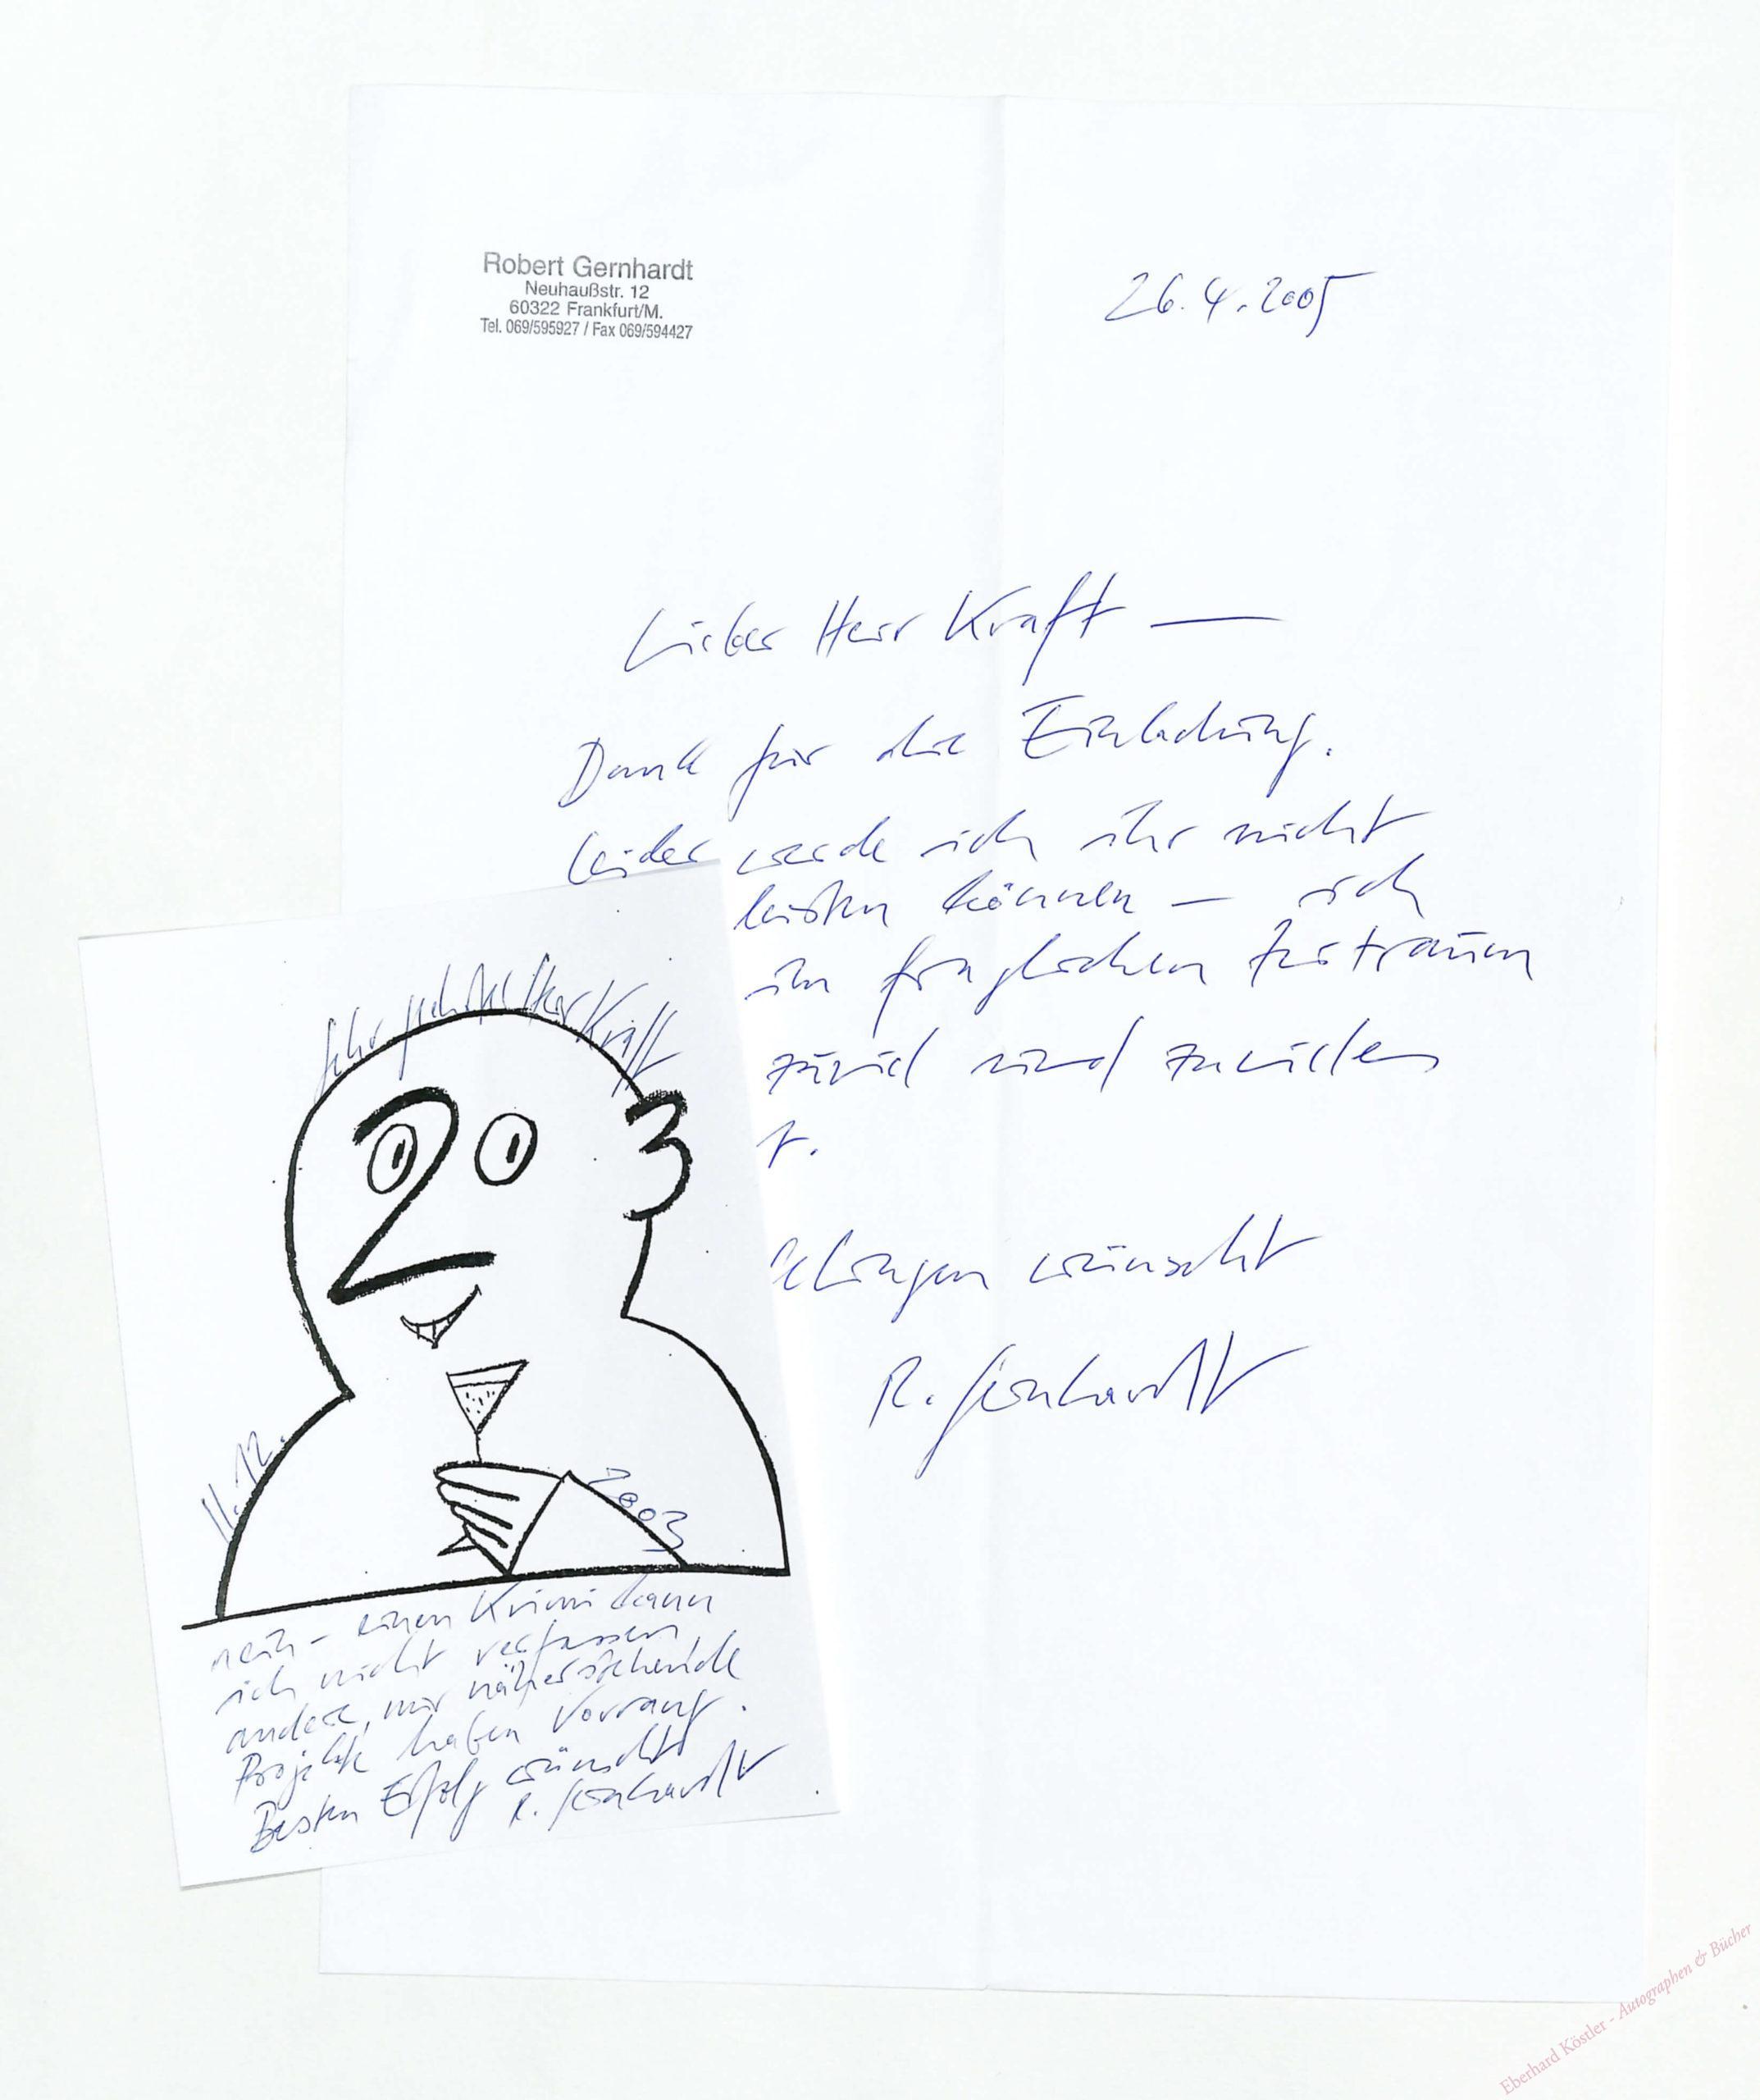 Robert Gernhardt
Neuhaußstr. 12
60322 Frankfurt/M.
Tel. 069/595927 / Fax 069/594427
26.4.2005
Lieber Herr Kraft —
Dank für die Einladung.
Leider werde ich ihr nicht
leisten können — ich
im fraglichen Zeitraum
zuviel und zuvielen
t.
elingen wünscht
R. Gernhardt
Sehr geehrter Herr Kraft
11.12.
2003
nein – einen Krimi kann
ich nicht verfassen,
andere, mir näherstehende
Projekte haben Vorrang.
Besten Erfolg wünscht
R. Gernhardt
Eberhard Köstler - Autographen & Bücher